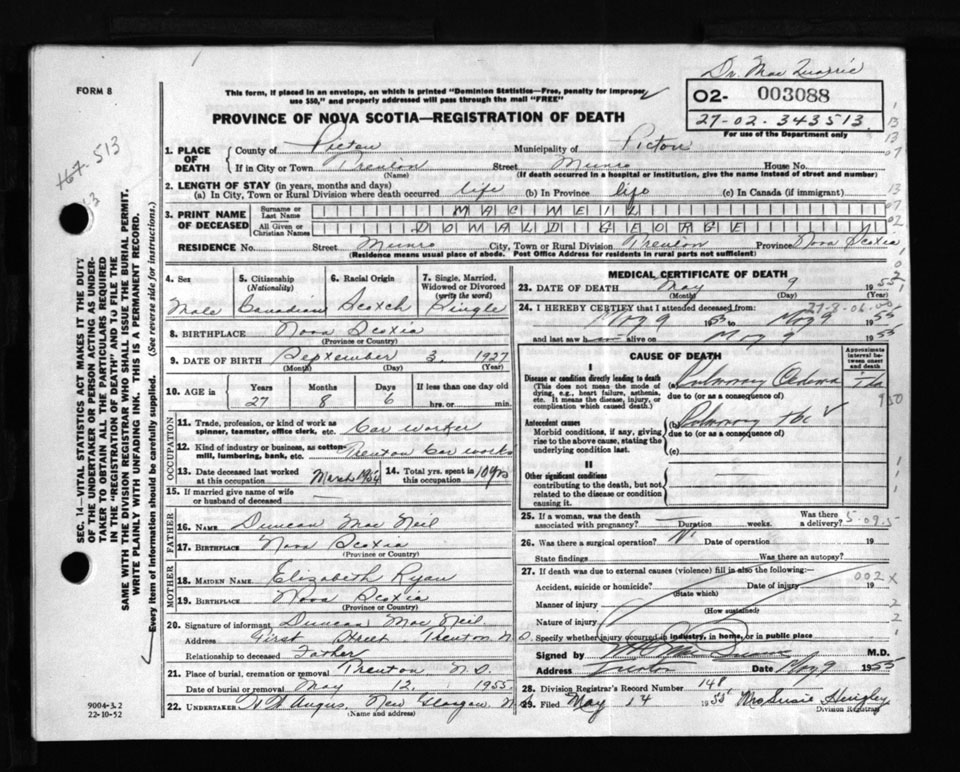 Dr. Mac Quarrie
FORM 8
This form, if placed in an envelope, on which is printed "Dominion Statistics—Free, penalty for improper
use $50," and properly addressed will pass through the mail "FREE"
02- 003088
27-02-343513
For use of the Department only
PROVINCE OF NOVA SCOTIA—REGISTRATION OF DEATH
167-513
1. PLACE OF DEATH County of Pictou Municipality of Pictou
If in City or Town Trenton (Name) Street Munro House No.
(If death occurred in a hospital or institution, give the name instead of street and number)
2. LENGTH OF STAY (in years, months and days)
(a) In City, Town or Rural Division where death occurred life (b) In Province life (c) In Canada (if immigrant)
3. PRINT NAME OF DECEASED Surname or Last Name MAC NEIL
All Given or Christian Names DONALD GEORGE
RESIDENCE No. Street Munro City, Town or Rural Division Trenton Province Nova Scotia
(Residence means usual place of abode. Post Office Address for residents in rural parts not sufficient)
4. Sex Male
5. Citizenship (Nationality) Canadian
6. Racial Origin Scotch
7. Single, Married, Widowed or Divorced (write the word) Single
8. BIRTHPLACE Nova Scotia
(Province or Country)
9. DATE OF BIRTH September 3 1927
(Month) (Day) (Year)
10. AGE in Years 27 Months 8 Days 6 If less than one day old hrs. or min.
OCCUPATION
11. Trade, profession, or kind of work as spinner, teamster, office clerk, etc. Car worker
12. Kind of industry or business, as cotton-mill, lumbering, bank, etc. Trenton Car works
13. Date deceased last worked at this occupation March 1954
14. Total yrs. spent in this occupation 10 yrs
15. If married give name of wife or husband of deceased —
FATHER
16. NAME Duncan Mac Neil
17. BIRTHPLACE Nova Scotia
(Province or Country)
MOTHER
18. MAIDEN NAME Elizabeth Ryan
19. BIRTHPLACE Nova Scotia
(Province or Country)
20. Signature of informant Duncan Mac Neil
Address First Street Trenton N.S.
Relationship to deceased Father
21. Place of burial, cremation or removal Trenton N.S.
Date of burial or removal May 12, 1955
22. UNDERTAKER Angus, New Glasgow, N.
(Name and address)
MEDICAL CERTIFICATE OF DEATH
23. DATE OF DEATH May 9 1955
(Month) (Day) (Year)
24. I HEREBY CERTIFY that I attended deceased from:
May 9 1955 to May 9 1955
and last saw h alive on May 9 1955
CAUSE OF DEATH
Approximate interval between onset and death
I
Disease or condition directly leading to death
(This does not mean the mode of dying, e.g., heart failure, asthenia, etc. It means the disease, injury, or complication which caused death.)
(a) Pulmonary Oedema
due to (or as a consequence of)
Antecedent causes
Morbid conditions, if any, giving rise to the above cause, stating the underlying condition last.
Pulmonary tbc
due to (or as a consequence of)
(c)
II
Other significant conditions
contributing to the death, but not related to the disease or condition causing it.
25. If a woman, was the death associated with pregnancy? Duration weeks. Was there a delivery?
26. Was there surgical operation? No Date of operation 19
State findings Was there an autopsy?
27. If death was due to external causes (violence) fill in also the following:—
Accident, suicide or homicide? (State which) Date of injury 19
002 x
Manner of injury (How sustained)
Nature of injury
Specify whether injury occurred in industry, in home, or in public place
Signed by M.D.
Address Trenton Date May 9 1955
28. Division Registrar's Record Number 148
29. Filed May 14 1955 Mrs Susie
Division Registrar
SEC. 14—VITAL STATISTICS ACT MAKES IT THE DUTY
OF THE UNDERTAKER OR PERSON ACTING AS UNDER-
TAKER TO OBTAIN ALL THE PARTICULARS REQUIRED
IN THE "REGISTRATION OF DEATH" AND TO FILE THE
SAME WITH THE DIVISION REGISTRAR WHO SHALL ISSUE THE BURIAL PERMIT.
WRITE PLAINLY WITH UNFADING INK. THIS IS A PERMANENT RECORD.
Every item of information should be carefully supplied. (See reverse side for instructions.)
9004-3.2
22-10-52